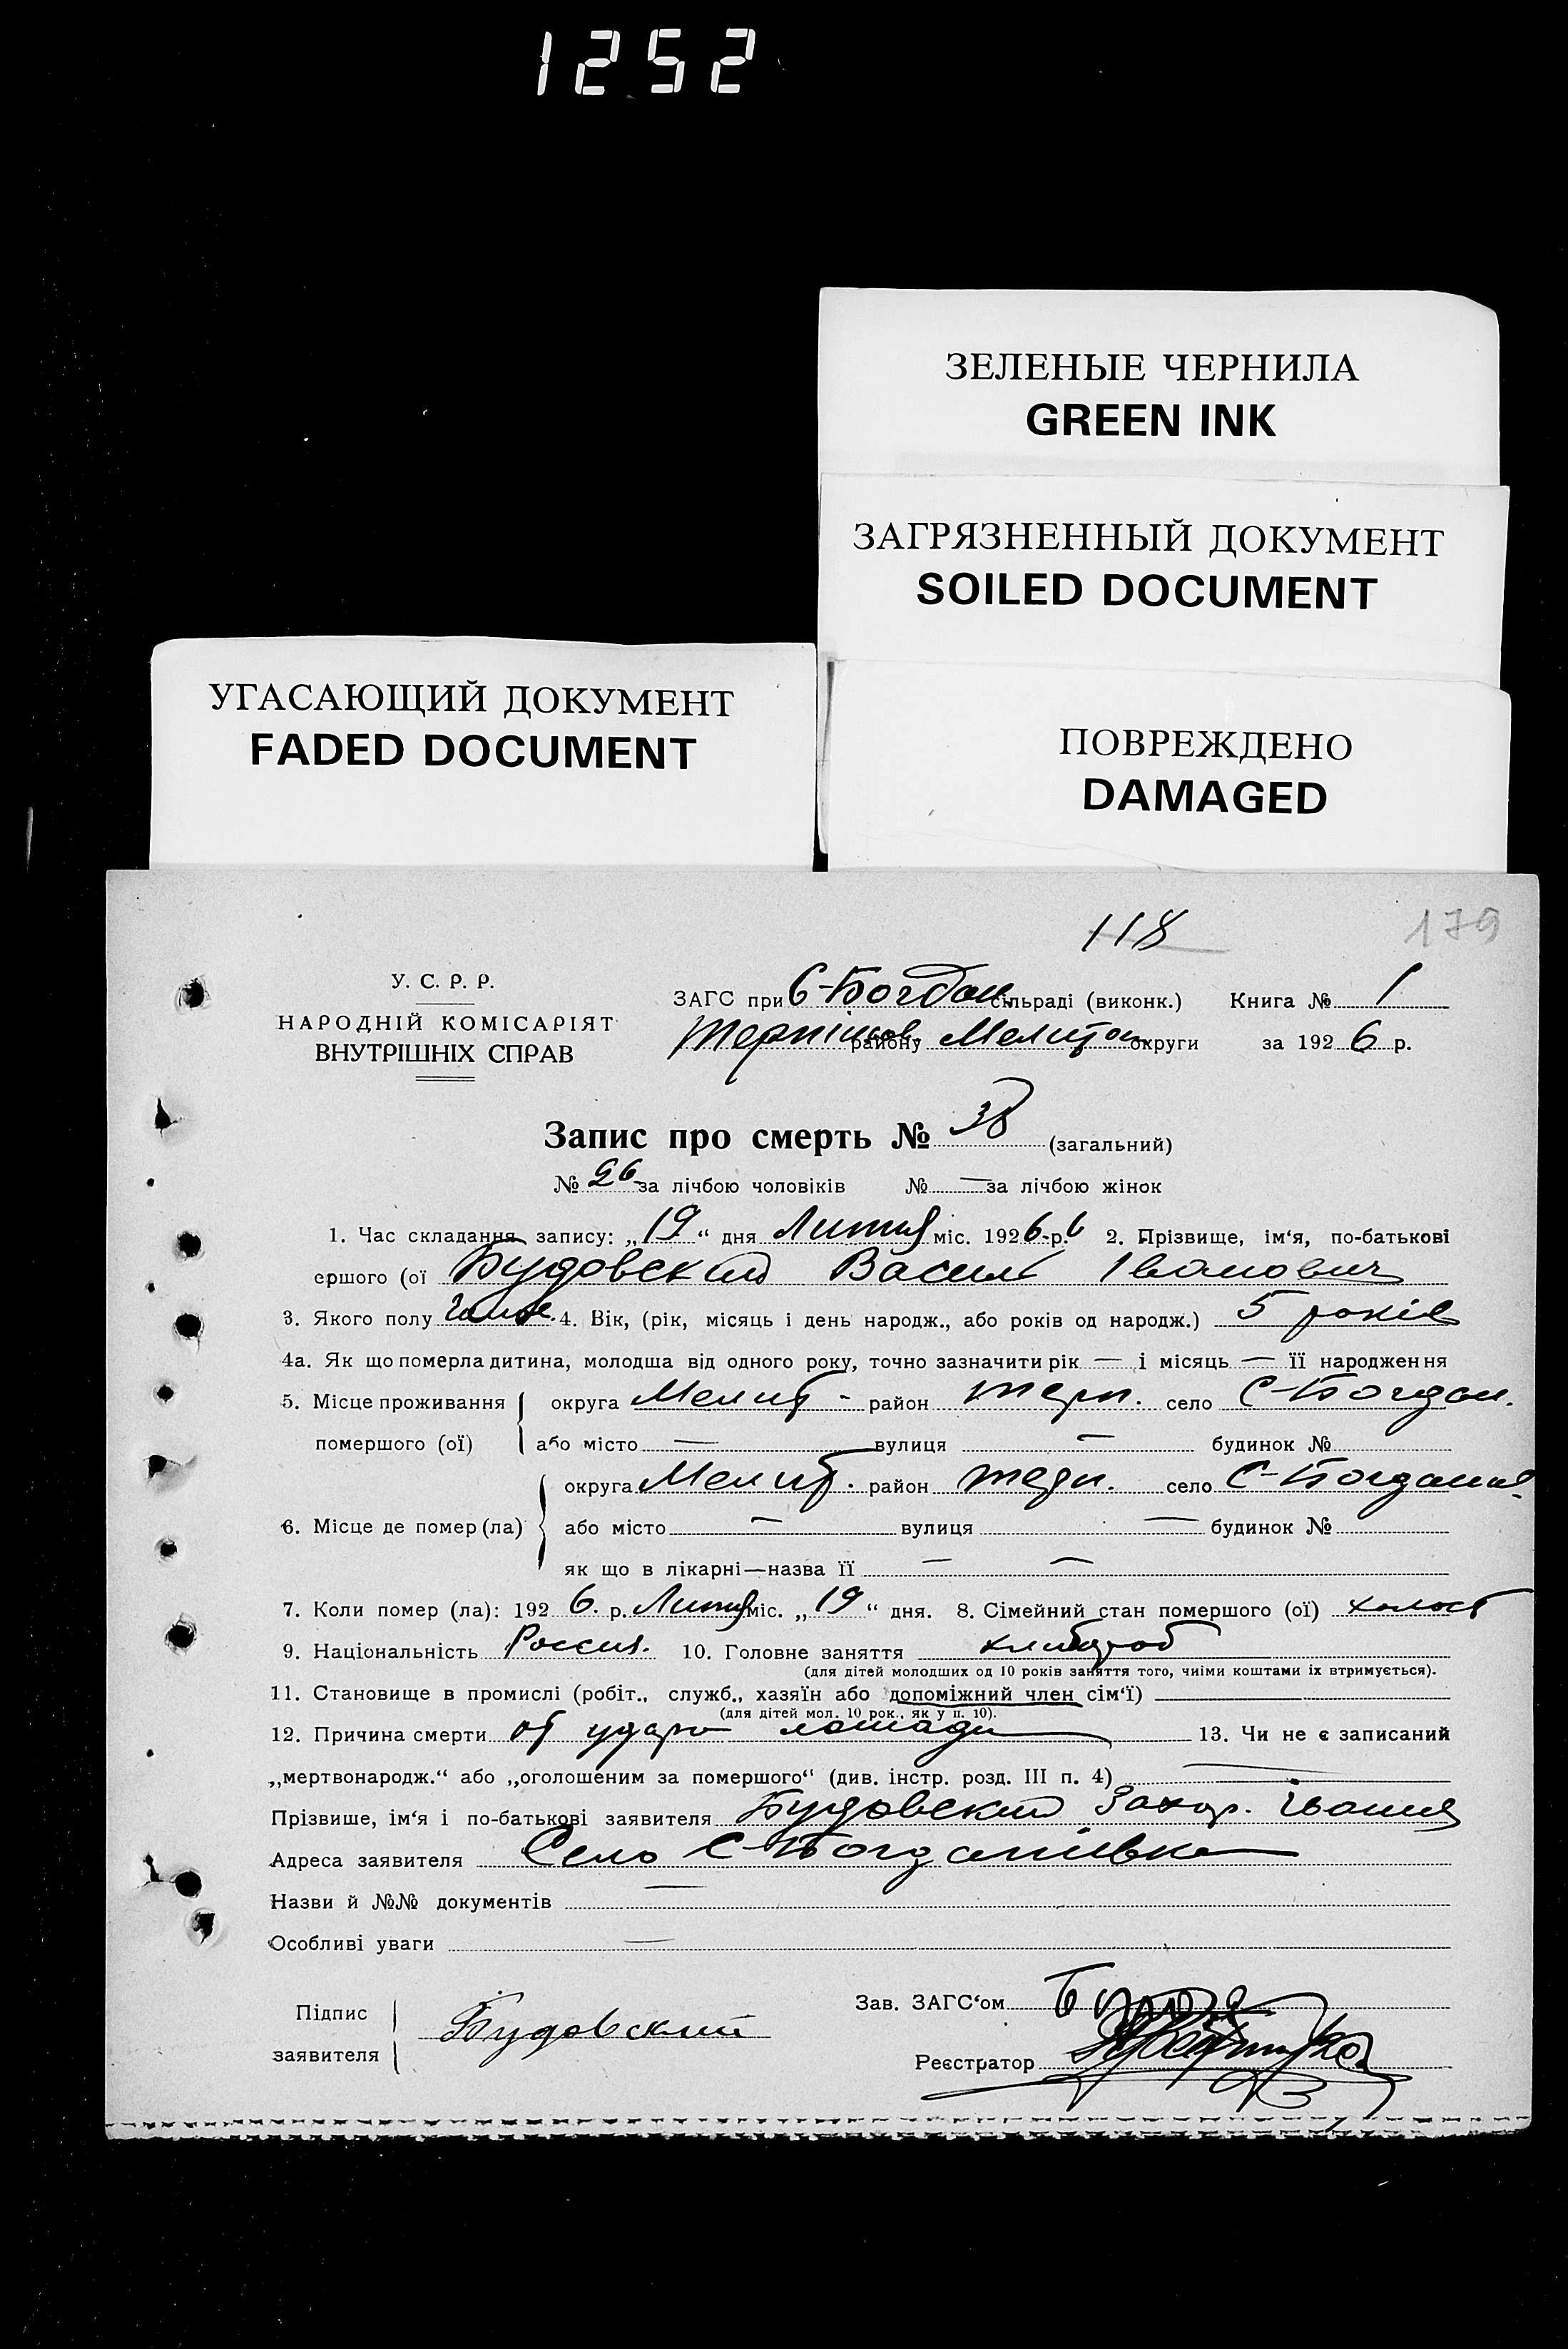 1252
ЗЕЛЕНЫЕ ЧЕРНИЛА
GREEN INK
ЗАГРЯЗНЕННЫЙ ДОКУМЕНТ
SOILED DOCUMENT
УГАСАЮЩИЙ ДОКУМЕНТ
FADED DOCUMENT
ПОВРЕЖДЕНО
DAMAGED
118 179
У. С. Р. Р.
НАРОДНІЙ КОМІСАРІЯТ
ВНУТРІШНІХ СПРАВ
ЗАГС при С-Богдан. сільраді (виконк.) Книга № 1
району Мелитоп. округи за 1926 р.
Запис про смерть № 38 (загальний)
№ 26 за лічбою чоловіків № — за лічбою жінок
1. Час складання запису: „19“ дня Лютия міс. 1926 р. 2. Прізвище, ім‘я, по-батькові
ершого (ої Будовский Василь Іванович
3. Якого полу 4. Вік, (рік, місяць і день народж., або років од народж.) 5 років
4а. Як що померла дитина, молодша від одного року, точно зазначити рік — і місяць — її народження
5. Місце проживання округа Мелит. район Терп. село С-Богдан.
помершого (ої) або місто — вулиця — будинок №
6. Місце де помер (ла) округа Мелит. район Терп. село С-Богданів.
або місто — вулиця — будинок №
як що в лікарні—назва її — —
7. Коли помер (ла): 1926. р. Лютия міс. „19“ дня. 8. Сімейний стан помершого (ої) холост
9. Національність Россия. 10. Головне заняття хлибороб
(для дітей молодших од 10 років заняття того, чиїми коштами їх втримується).
11. Становище в промислі (робіт., служб., хазяїн або допоміжний член сім‘ї)
(для дітей мол. 10 рок., як у п. 10).
12. Причина смерти от удара лошади 13. Чи не є записаний
„мертвонародж.“ або „оголошеним за помершого“ (див. інстр. розд. III п. 4) —
Прізвише, ім‘я і по-батькові заявителя Будовский Захар.
Адреса заявителя Село С-Богданівка
Назви й №№ документів —
Особливі уваги —
Підпис
заявителя Будовский
Зав. ЗАГС‘ом
Реєстратор